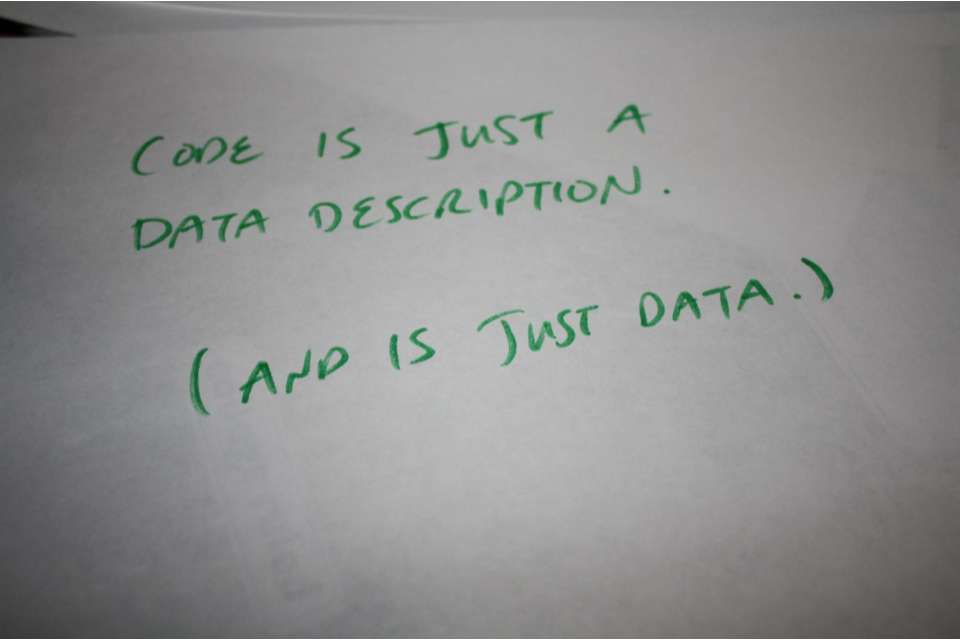 CODE IS JUST A
DATA DESCRIPTION.
(AND IS JUST DATA.)